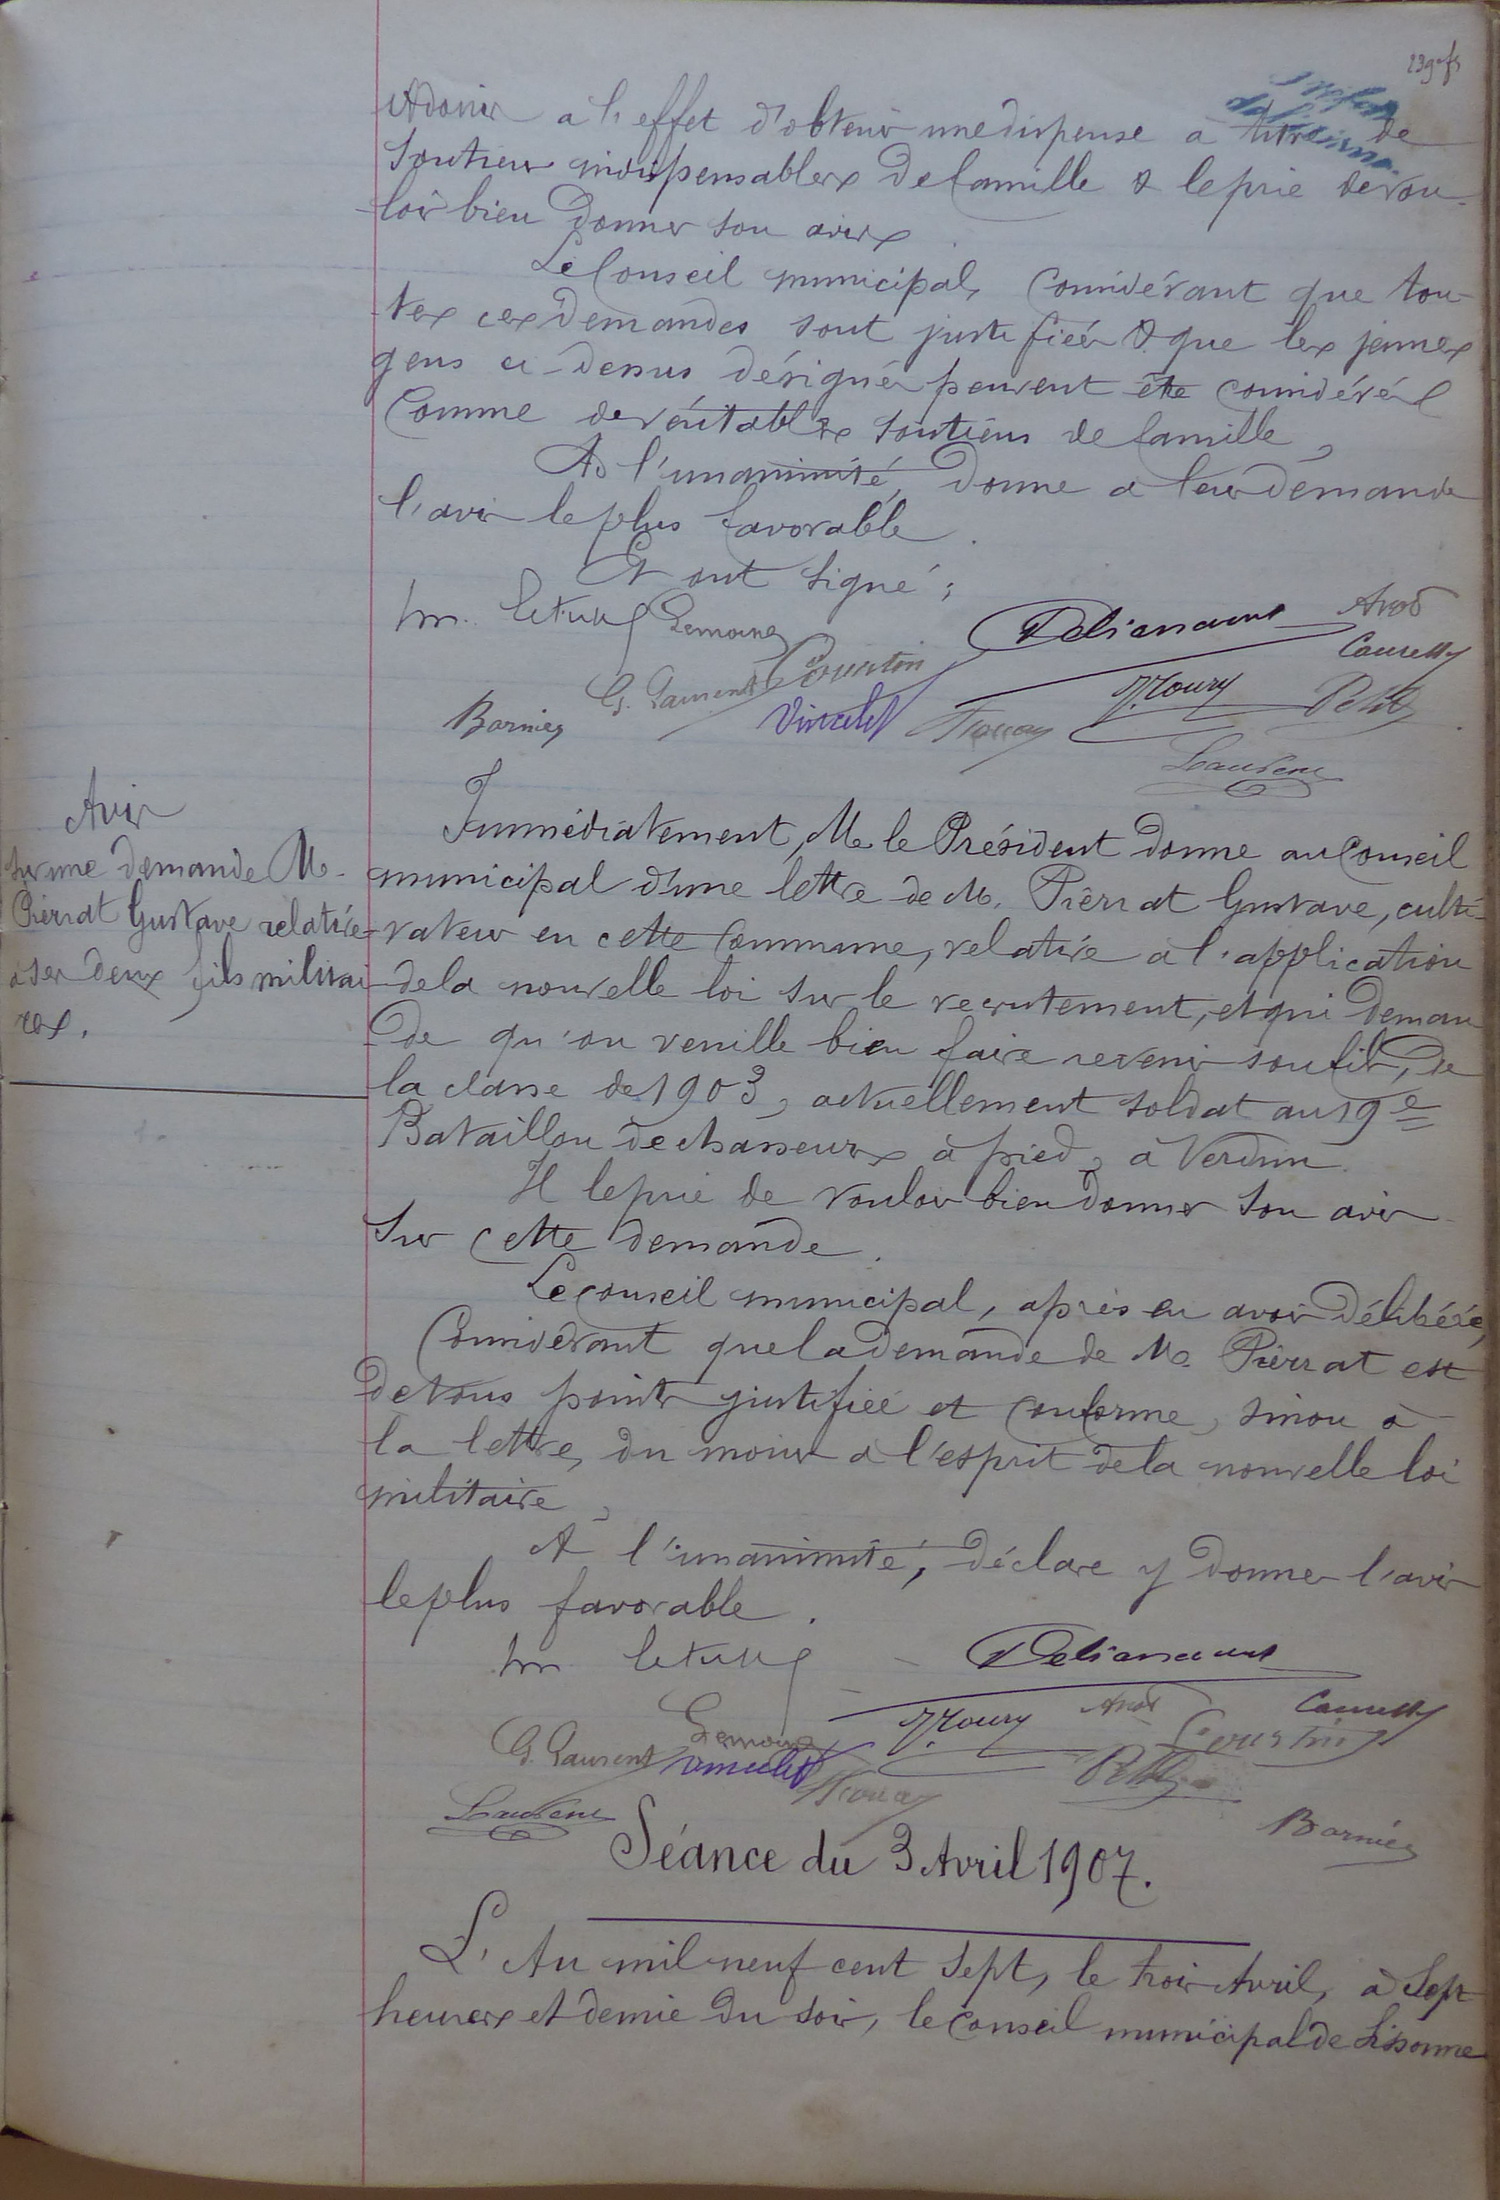 Adonis a l'effet d'obtenir une dispense à titre de
soutiens indispensables de famille & le prie de vou-
loir bien donner son avis.
Le Conseil municipal, considérant que tou-
tes ces demandes sont justifiées & que les jeunes
gens ci-dessus désignés peuvent être considérés
comme de véritables soutiens de famille,
A l'unanimité, donne a leur demande
l'avis le plus favorable.
Et ont signé :
Lemoine
G. Laurent
Courtin
Barnier
Vincelet
J. Toury
Petit
Laurent
Avis
sur une demande M.
Pierrat Gustave relative
à ses deux fils militai
res.
Immédiatement, M. le Président donne au Conseil
municipal d'une lettre de M. Pierrat Gustave, culti-
vateur en cette Commune, relative a l'application
de la nouvelle loi sur le recrutement, et qui deman
de qu'on veuille bien faire revenir son fils, de
la classe de 1903, actuellement soldat au 19e
Bataillon de chasseurs à pied, à Verdun.
Il le prie de vouloir bien donner son avis
sur cette demande.
Le conseil municipal, après en avoir délibéré,
Considérant que la demande de M. Pierrat est
de tous points justifiée et conforme, sinon à
la lettre, du moins a l'esprit de la nouvelle loi
militaire,
A l'unanimité, déclare y donner l'avis
le plus favorable.
J. Toury
Courtin
G. Laurent
Lemoine
Vincelet
Petit
Laurent
Barnier
Séance du 3 Avril 1907.
L'An mil neuf cent sept, le trois Avril, à sept
heures et demie du soir, le Conseil municipal de Sissonne